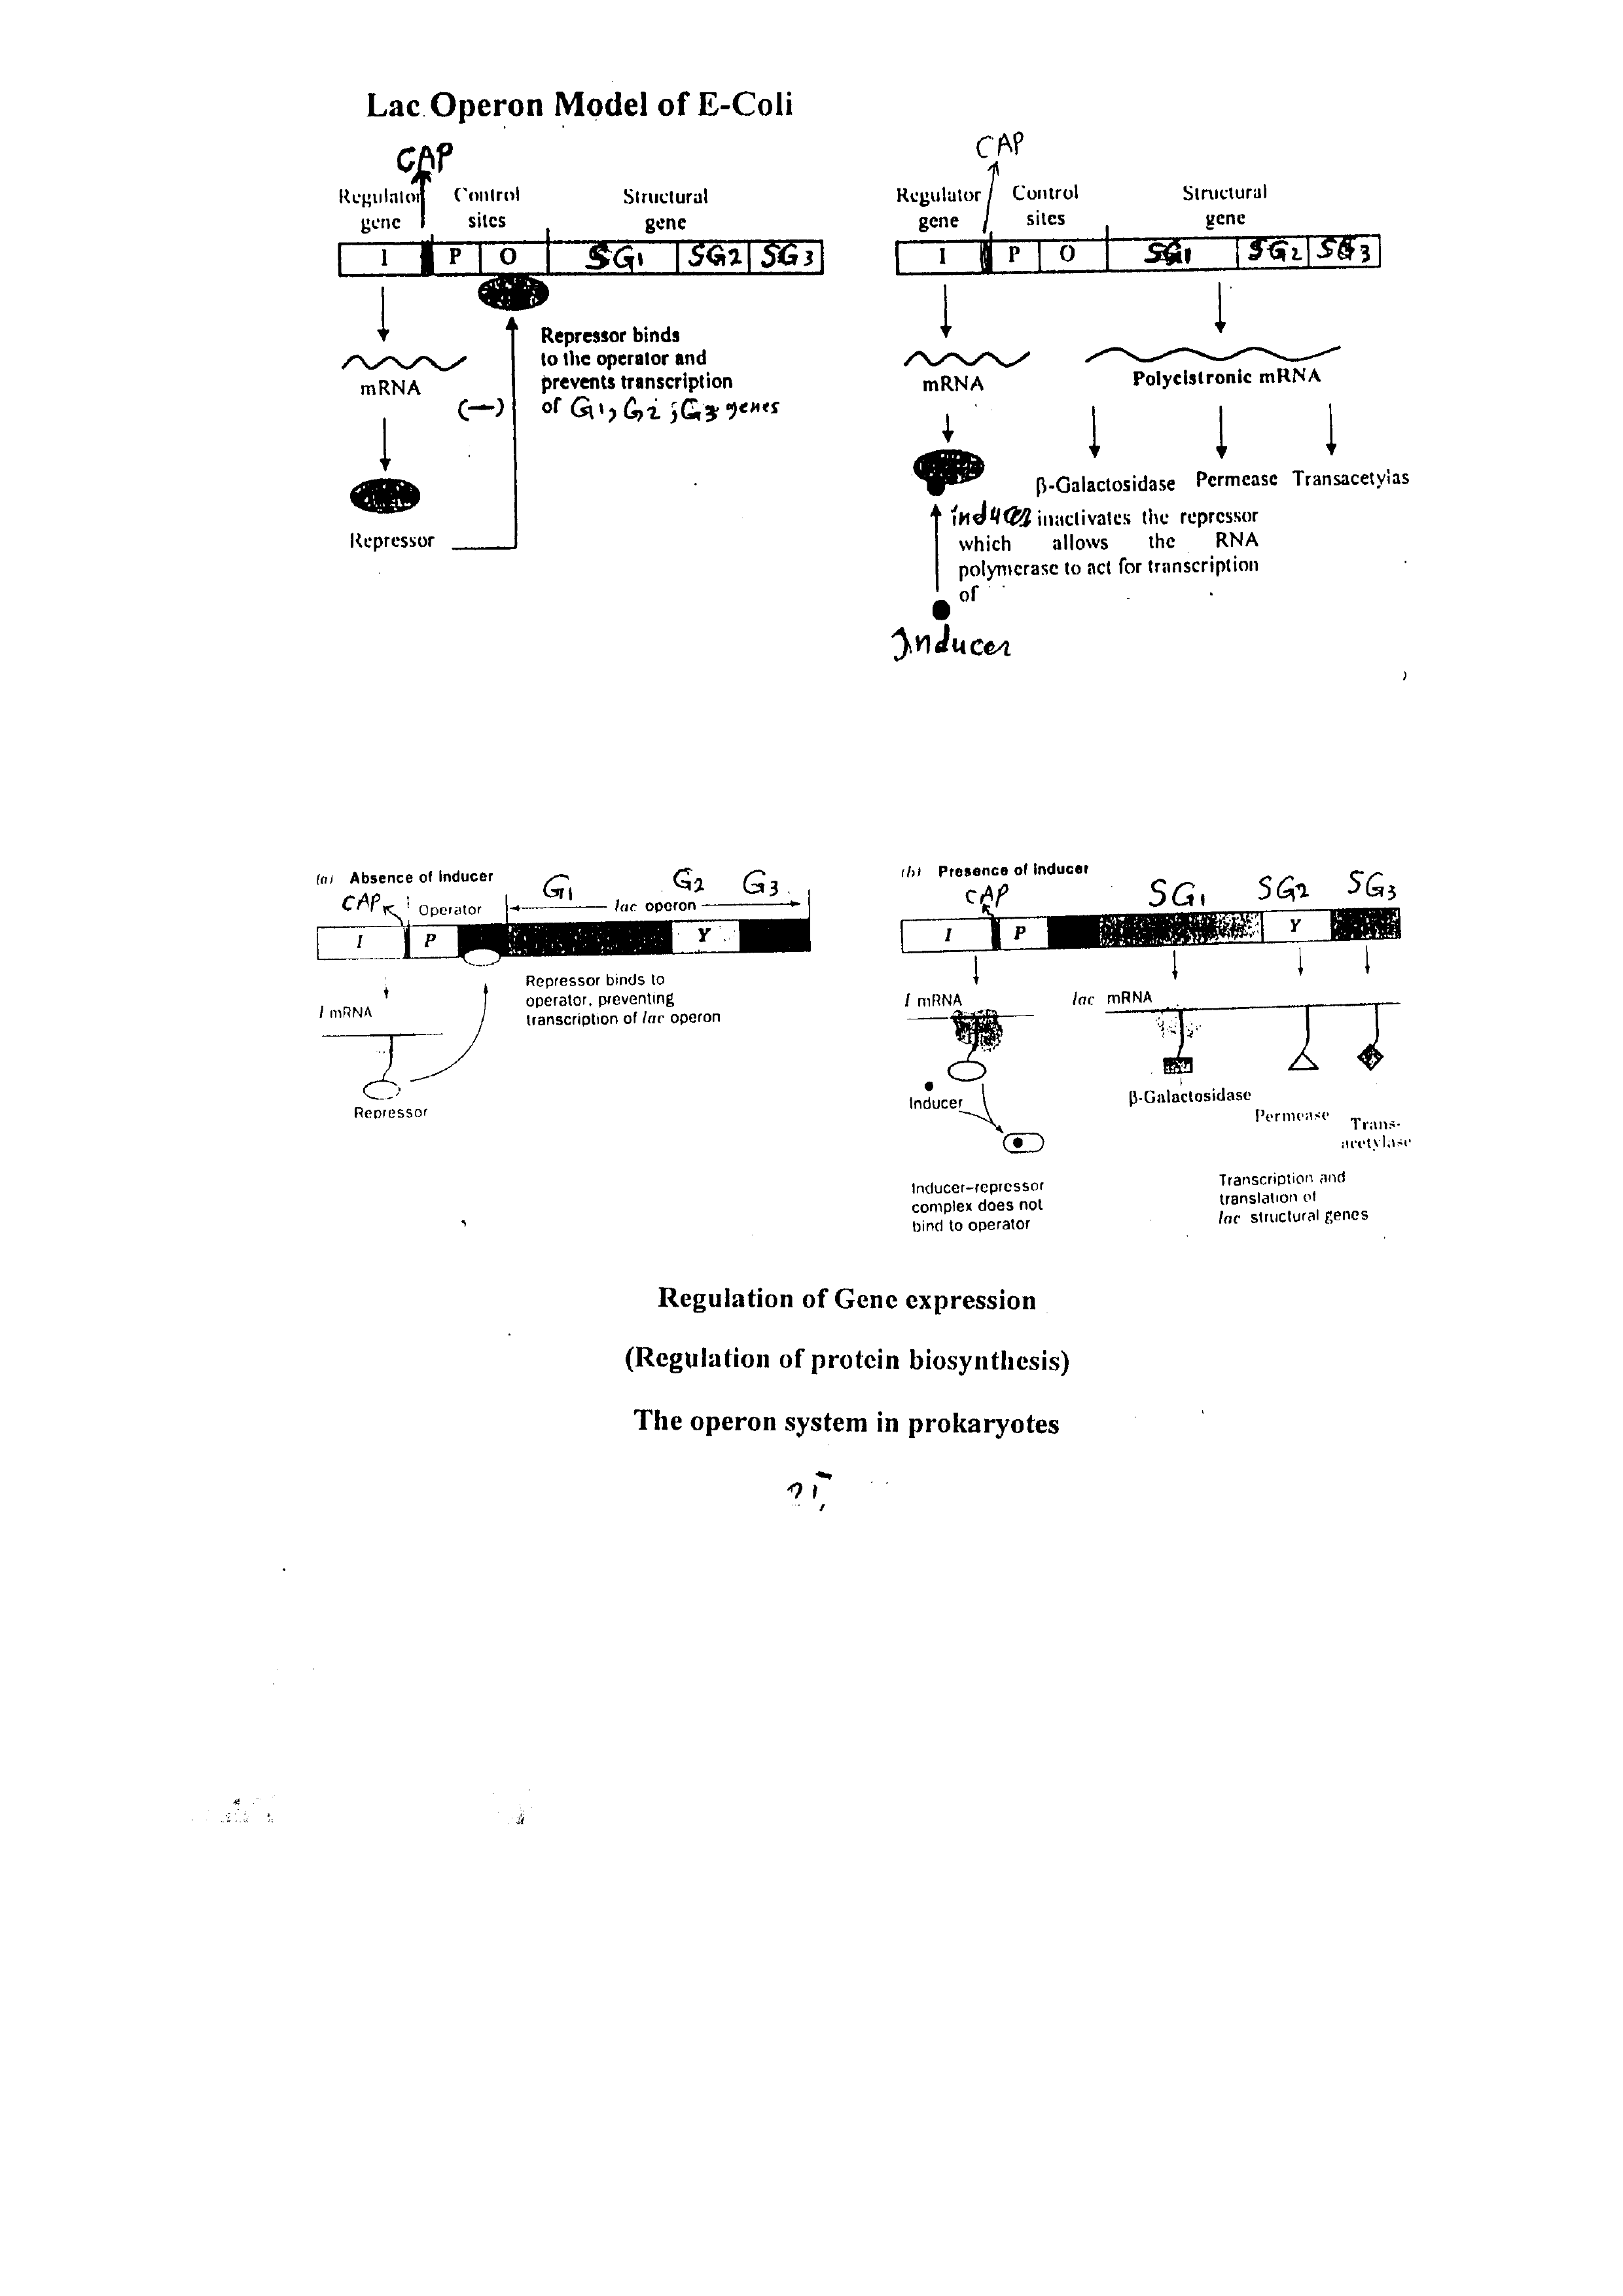 Lac Operon Model of E-Coli
CAP
Regulator
gene
Control
sites
Structural
gene
I
P
O
SG1
SG2
SG3
mRNA
(—)
Repressor
Repressor binds
to the operator and
prevents transcription
of G1, G2; G3 genes
CAP
Regulator
gene
Control
sites
Structural
gene
I
P
O
SG1
SG2
SG3
mRNA
Polycistronic mRNA
β-Galactosidase Permease Transacetylas
inducer inactivates the repressor
which allows the RNA
polymerase to act for transcription
of
Inducer
(a) Absence of Inducer
CAP
Operator
G1
G2
G3
lac operon
I
P
Y
I mRNA
Repressor
Repressor binds to
operator, preventing
transcription of lac operon
(b) Presence of Inducer
CAP
SG1
SG2
SG3
I
P
Y
I mRNA
lac mRNA
Inducer
β-Galactosidase
Permease
Trans-
acetylase
Inducer–repressor
complex does not
bind to operator
Transcription and
translation of
lac structural genes
Regulation of Gene expression
(Regulation of protein biosynthesis)
The operon system in prokaryotes